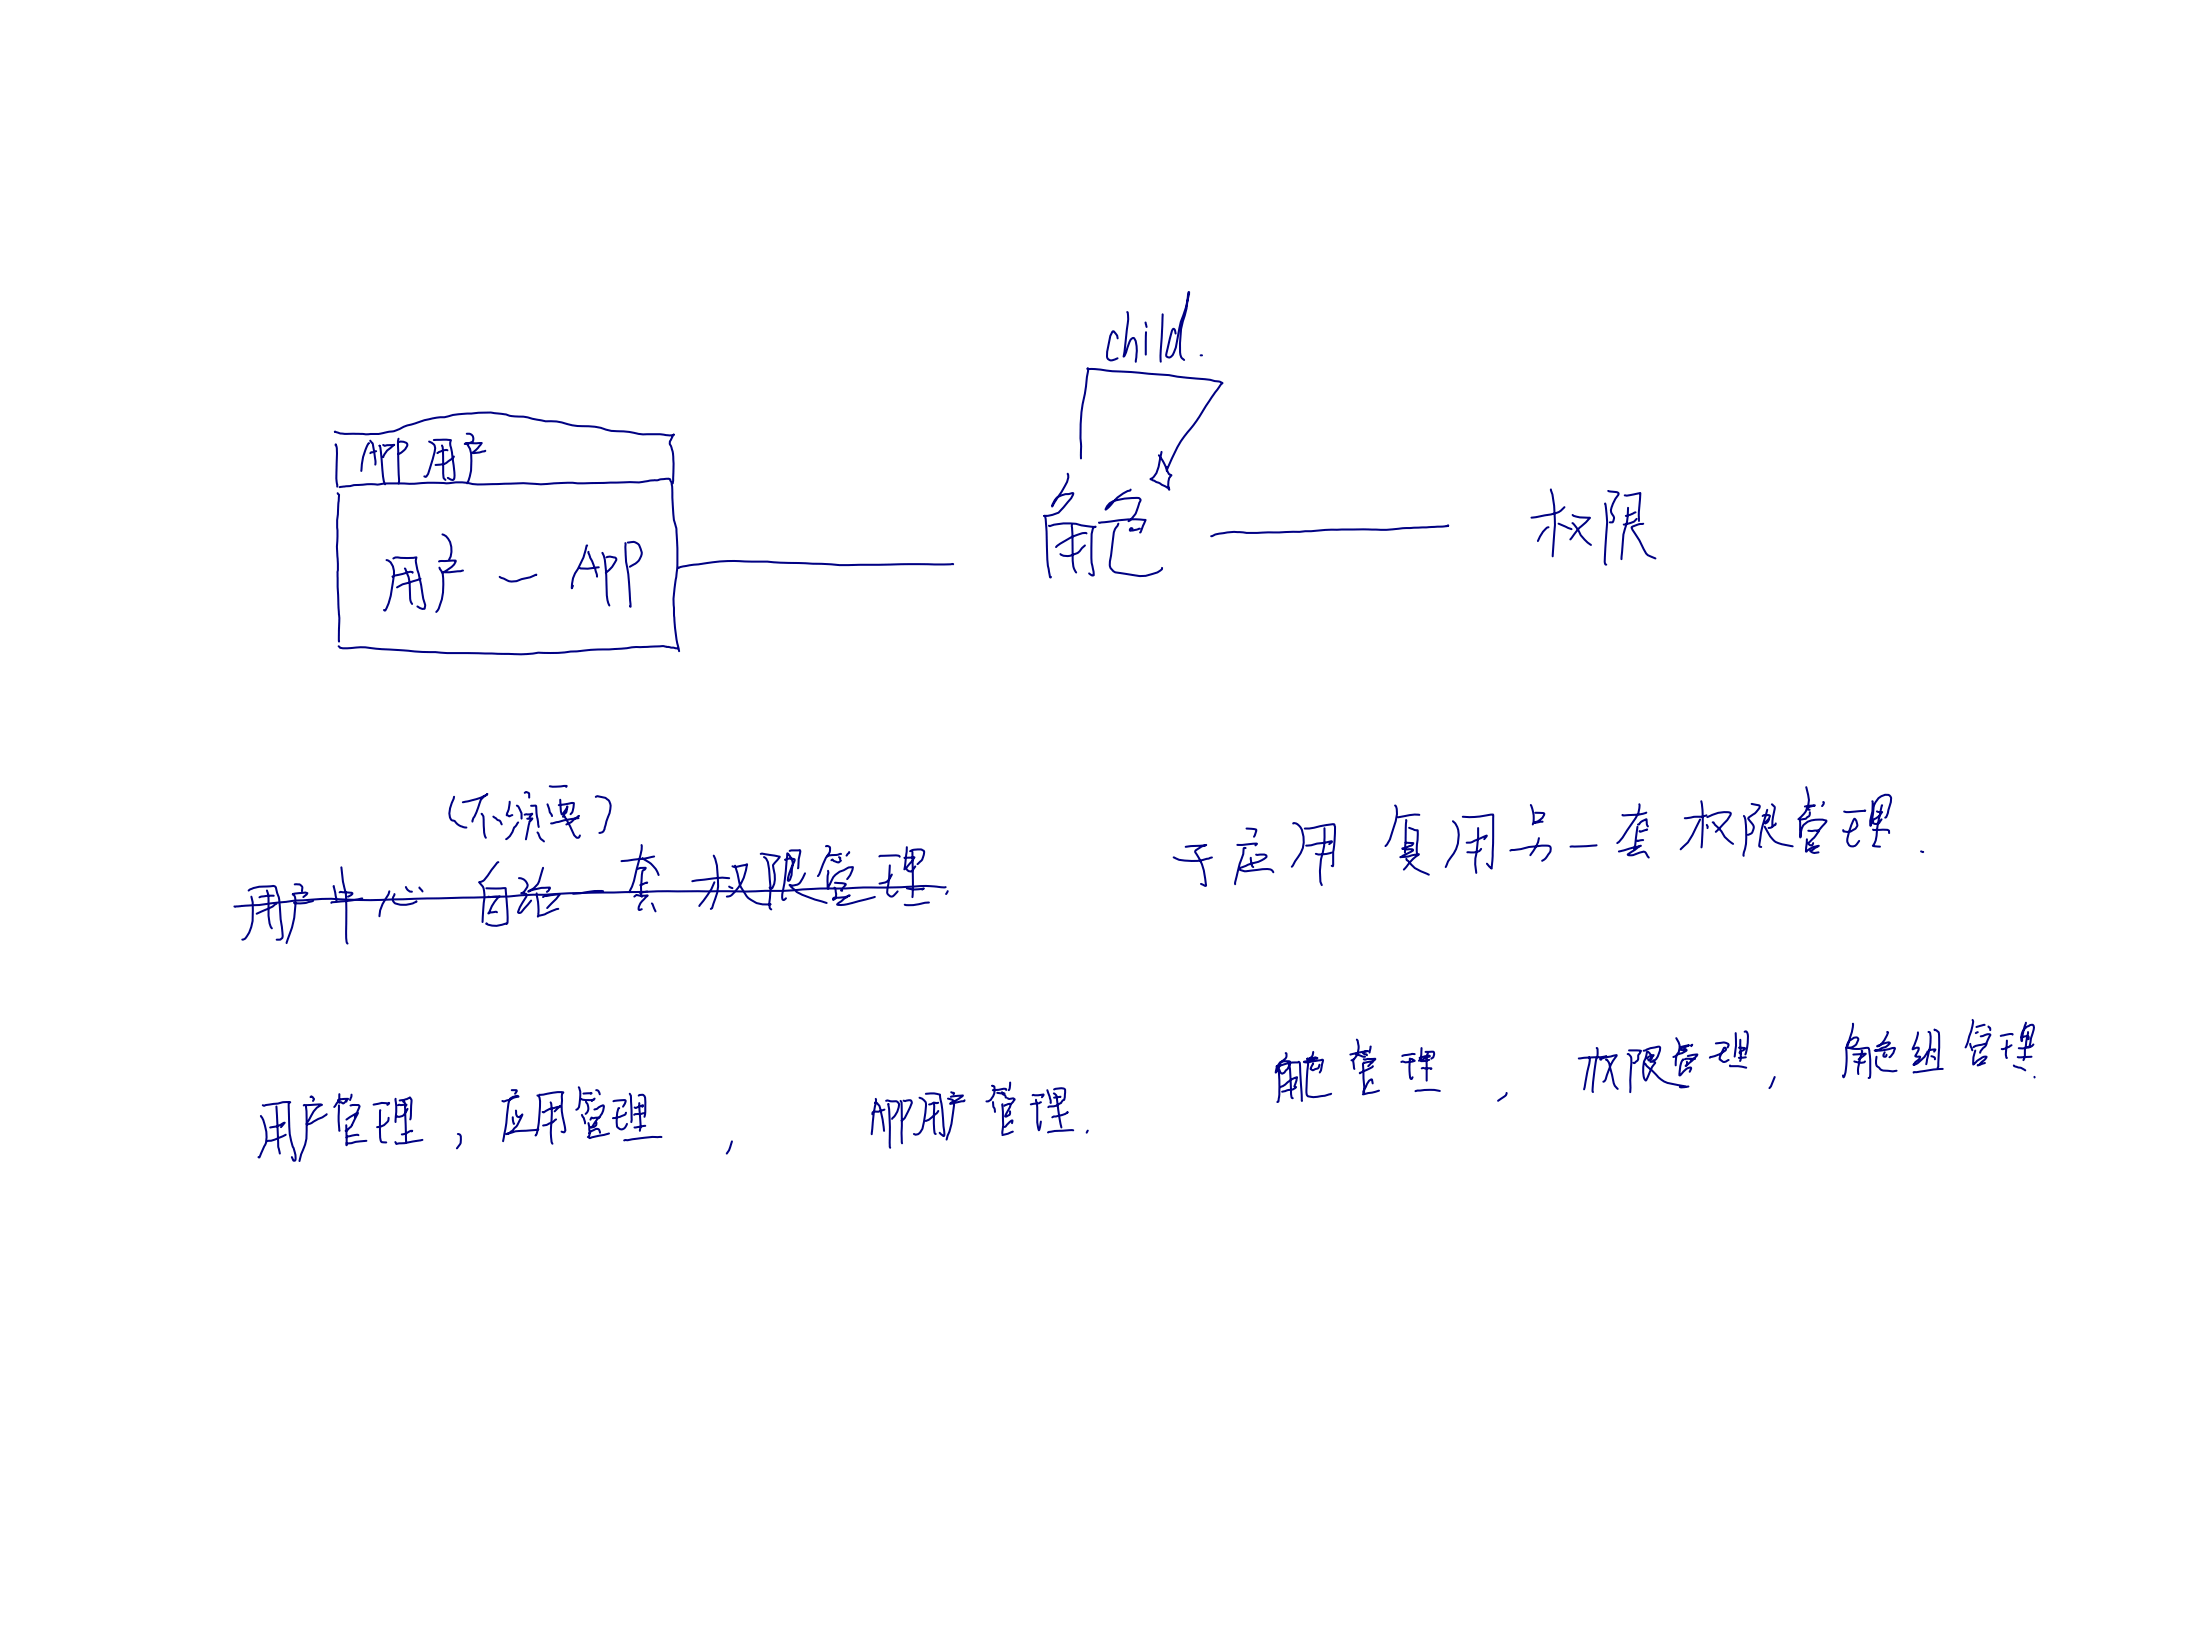 child.
APP 用户
用户 — APP
角色
权限
(不须要)
用户中心 自治一套 权限管理.
子应用 复用另一套 权限管理.
用户管理, 应用管理, APP用户管理.
角色管理, 权限管理, 角色组管理.